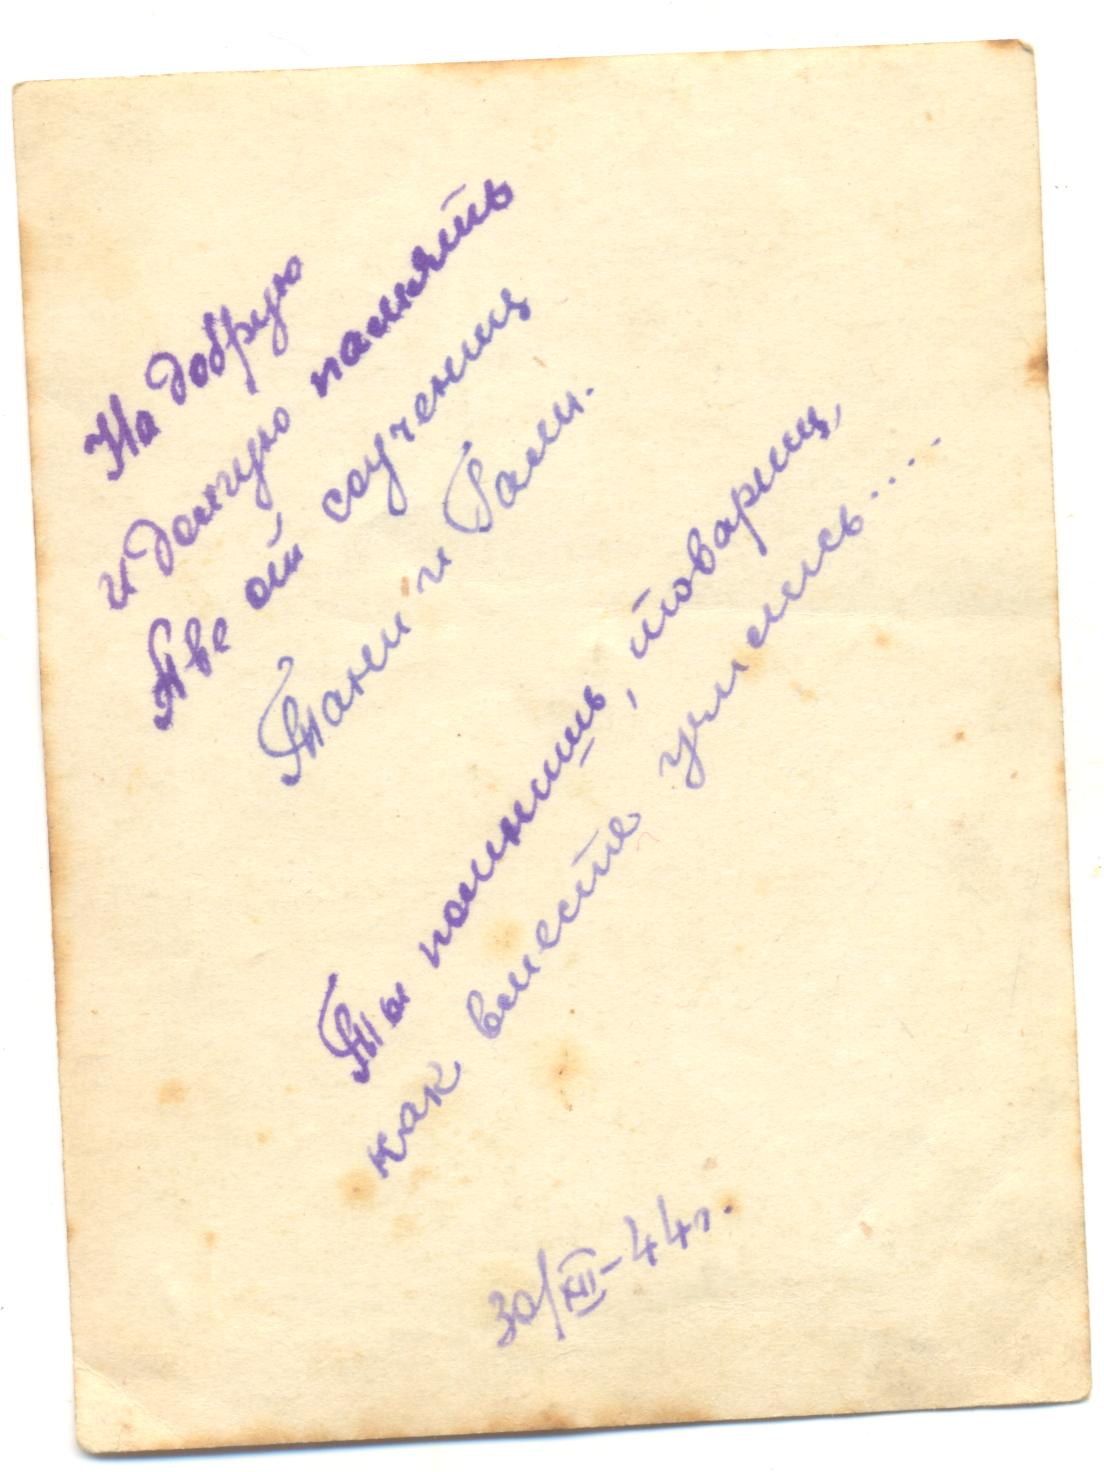 На добрую
и долгую память
Аве от соучениц
Тани и Гали.
Ты помнишь, товарищ,
как вместе учились....
30/XII-44г.